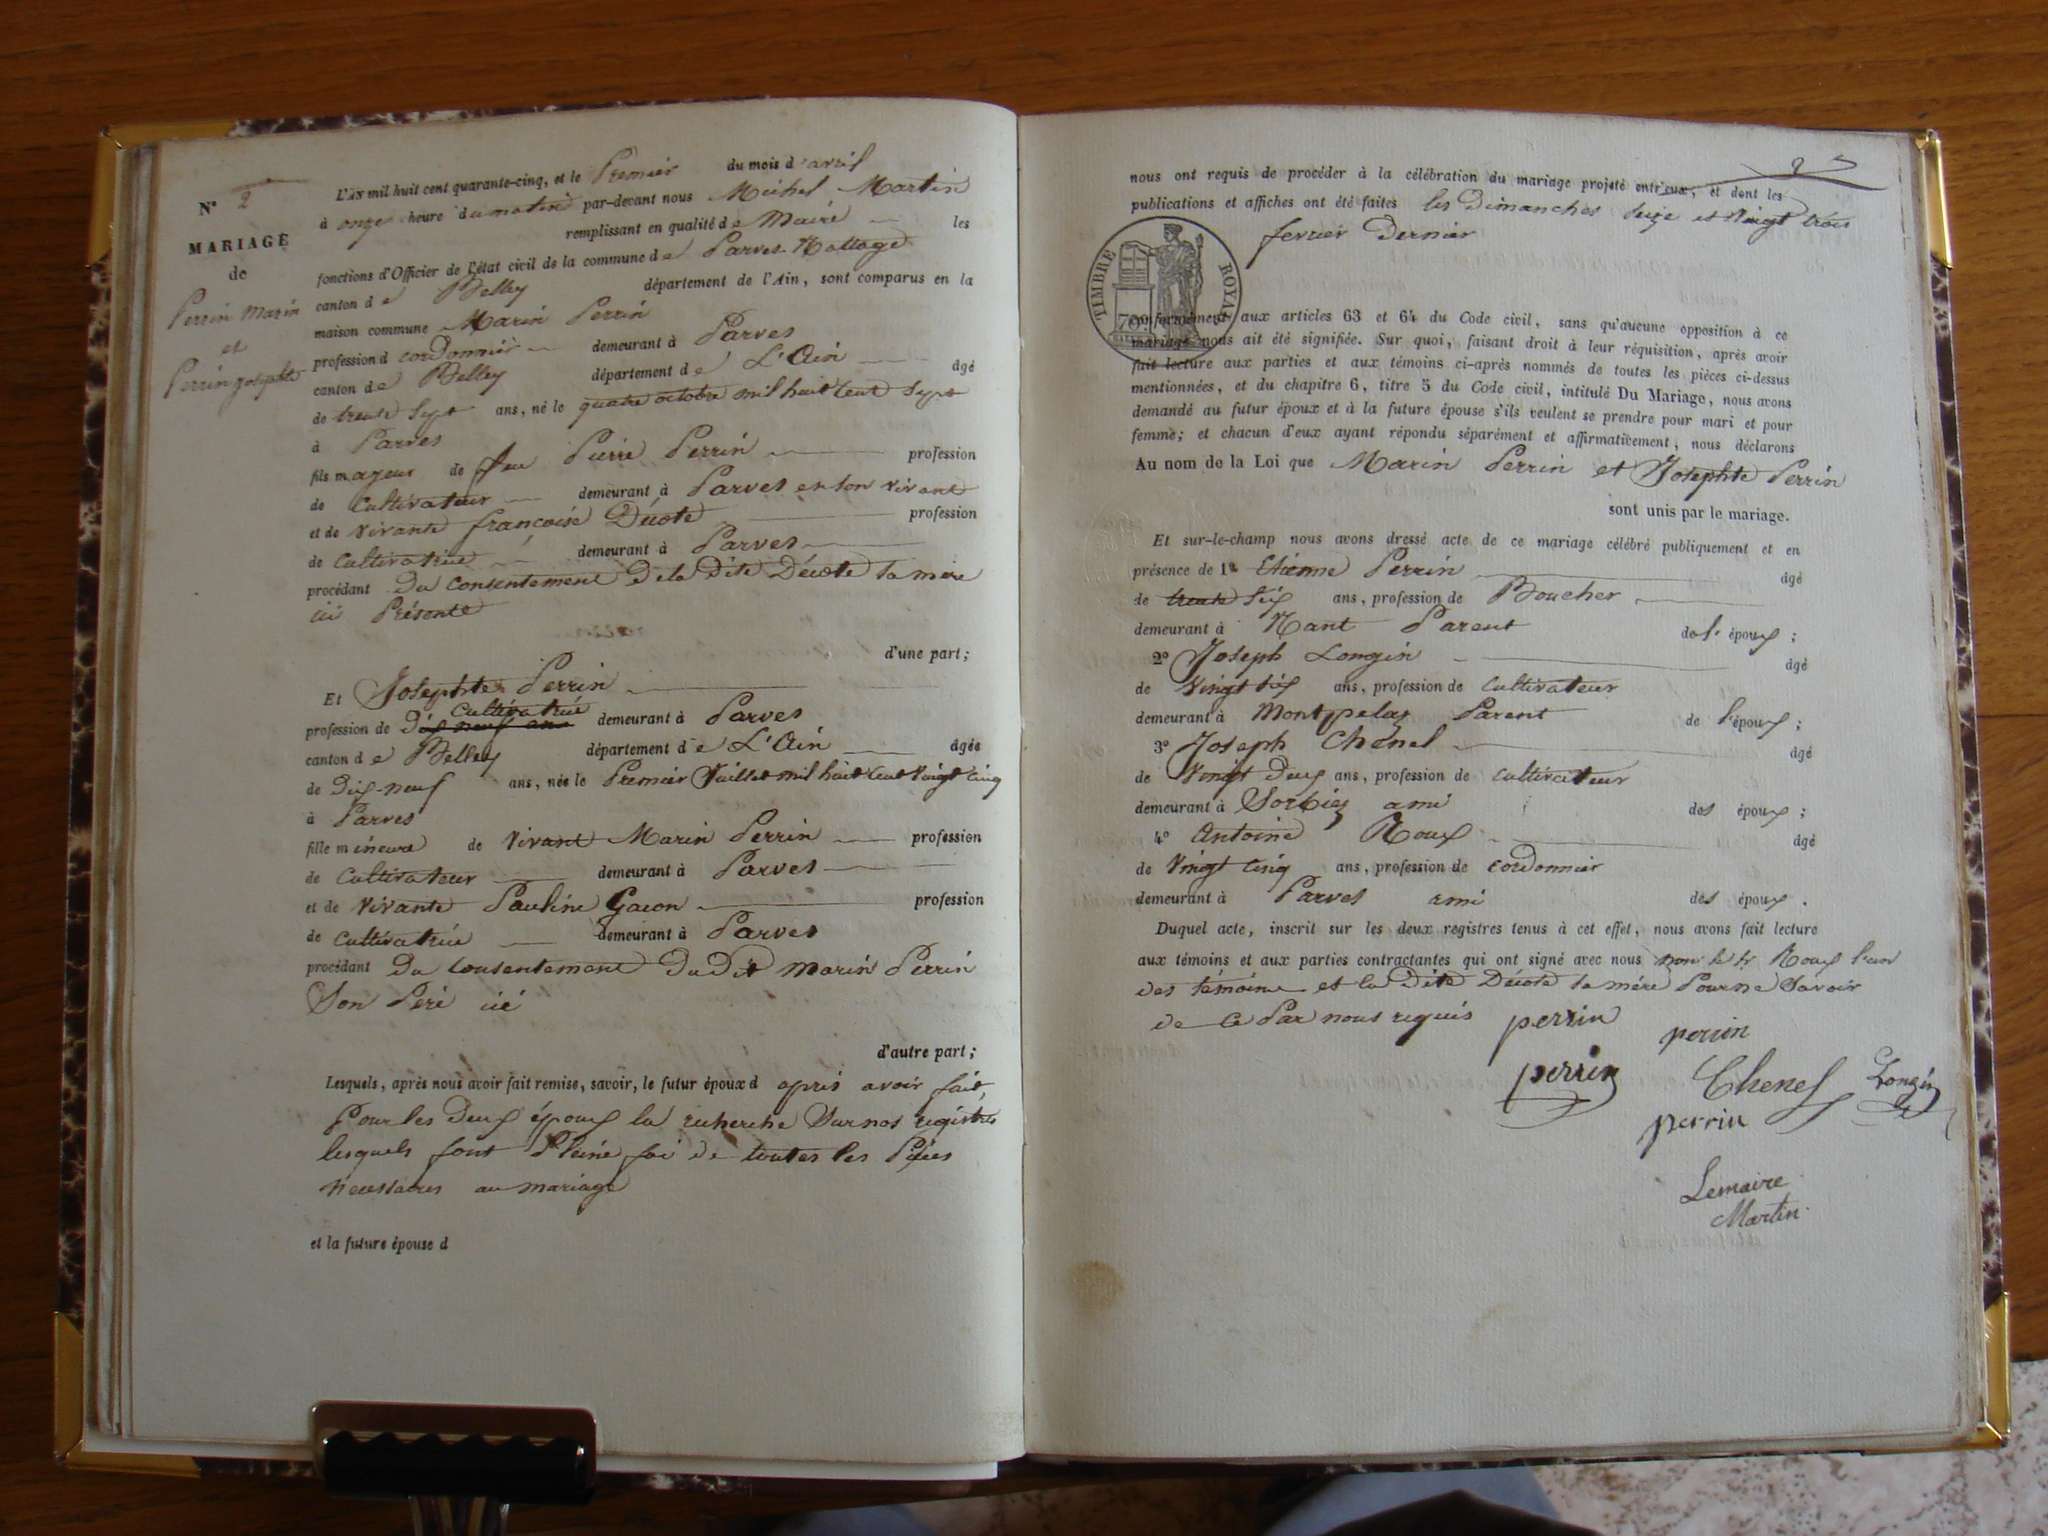 N° 2
MARIAGE
de
Perrin Marin
et
Perrin Josephte
L'AN mil huit cent quarante-cinq, et le Premier du mois d'avril
à onze heure du matin par-devant nous Michel Martin
remplissant en qualité de Maire les
fonctions d'Officier de l'état civil de la commune de Parves-Nattage
canton de Belley département de l'Ain, sont comparus en la
maison commune Marin Perrin
profession d cordonnier demeurant à Parves
canton de Belley département de L'Ain âgé
de trente sept ans, né le quatre octobre mil huit cent sept
à Parves
fils mageur de feu Pierre Perrin profession
de Cultivateur demeurant à Parves en son vivant
et de vivante françoise Décote profession
de Cultivatrice demeurant à Parves
procédant du consentement de la dite Décote sa mere
ici Présente
d'une part;
Et Josephte Perrin
cultivatrice
profession de Dix neuf ans demeurant à Parves
canton de Belley département de L'Ain âgée
de Dix-neuf ans, née le Premier Juillet mil huit cent vingt cinq
à Parves
fille mineure de vivant Marin Perrin profession
de Cultivateur demeurant à Parves
et de vivante Pauline Gacon profession
de Cultivatrice demeurant à Parves
procédant Du Consentement Du Dit Marin Perrin
Son Peré ici
d'autre part;
Lesquels, après nous avoir fait remise, savoir, le futur époux d apris avoir fait,
Pour les Deux époux la recherche Sur nos registres
lesquels font Pleine foi de toutes les Pièces
necessaires au mariage
et la future épouse d
2
nous ont requis de procéder à la célébration du mariage projeté entr'eux, et dont les
publications et affiches ont été faites les Dimanches seize et vingt trois
fevrier Dernier
TIMBRE ROYAL
70c
conformément aux articles 63 et 64 du Code civil, sans qu'aucune opposition à ce
mariage nous ait été signifiée. Sur quoi, faisant droit à leur réquisition, après avoir
fait lecture aux parties et aux témoins ci-après nommés de toutes les pièces ci-dessus
mentionnées, et du chapitre 6, titre 5 du Code civil, intitulé Du Mariage, nous avons
demandé au futur époux et à la future épouse s'ils veulent se prendre pour mari et pour
femme; et chacun d'eux ayant répondu séparément et affirmativement, nous déclarons
Au nom de la Loi que Marin Perrin et Josephte Perrin
sont unis par le mariage.
Et sur-le-champ nous avons dressé acte de ce mariage célébré publiquement et en
présence de 1° Etienne Perrin âgé
de trente six ans, profession de Boucher
demeurant à Nant Parent de l'époux;
2° Joseph Longin âgé
de vingt six ans, profession de Cultivateur
demeurant à Montpelaz Parent de l'époux;
3° Joseph Chenel âgé
de Vingt Deux ans, profession de cultivateur
demeurant à Sorbiez ami des époux;
4° Antoine Roux âgé
de Vingt cinq ans, profession de cordonnier
demeurant à Parves ami des époux.
Duquel acte, inscrit sur les deux registres tenus à cet effet, nous avons fait lecture
aux témoins et aux parties contractantes qui ont signé avec nous non Roux l'un
des témoins et la Dite Décote sa mère Pour ne Savoir
de ce Par nous requis perrin perrin
perrin Chenel Longin
perrin
Lemaire
Martin